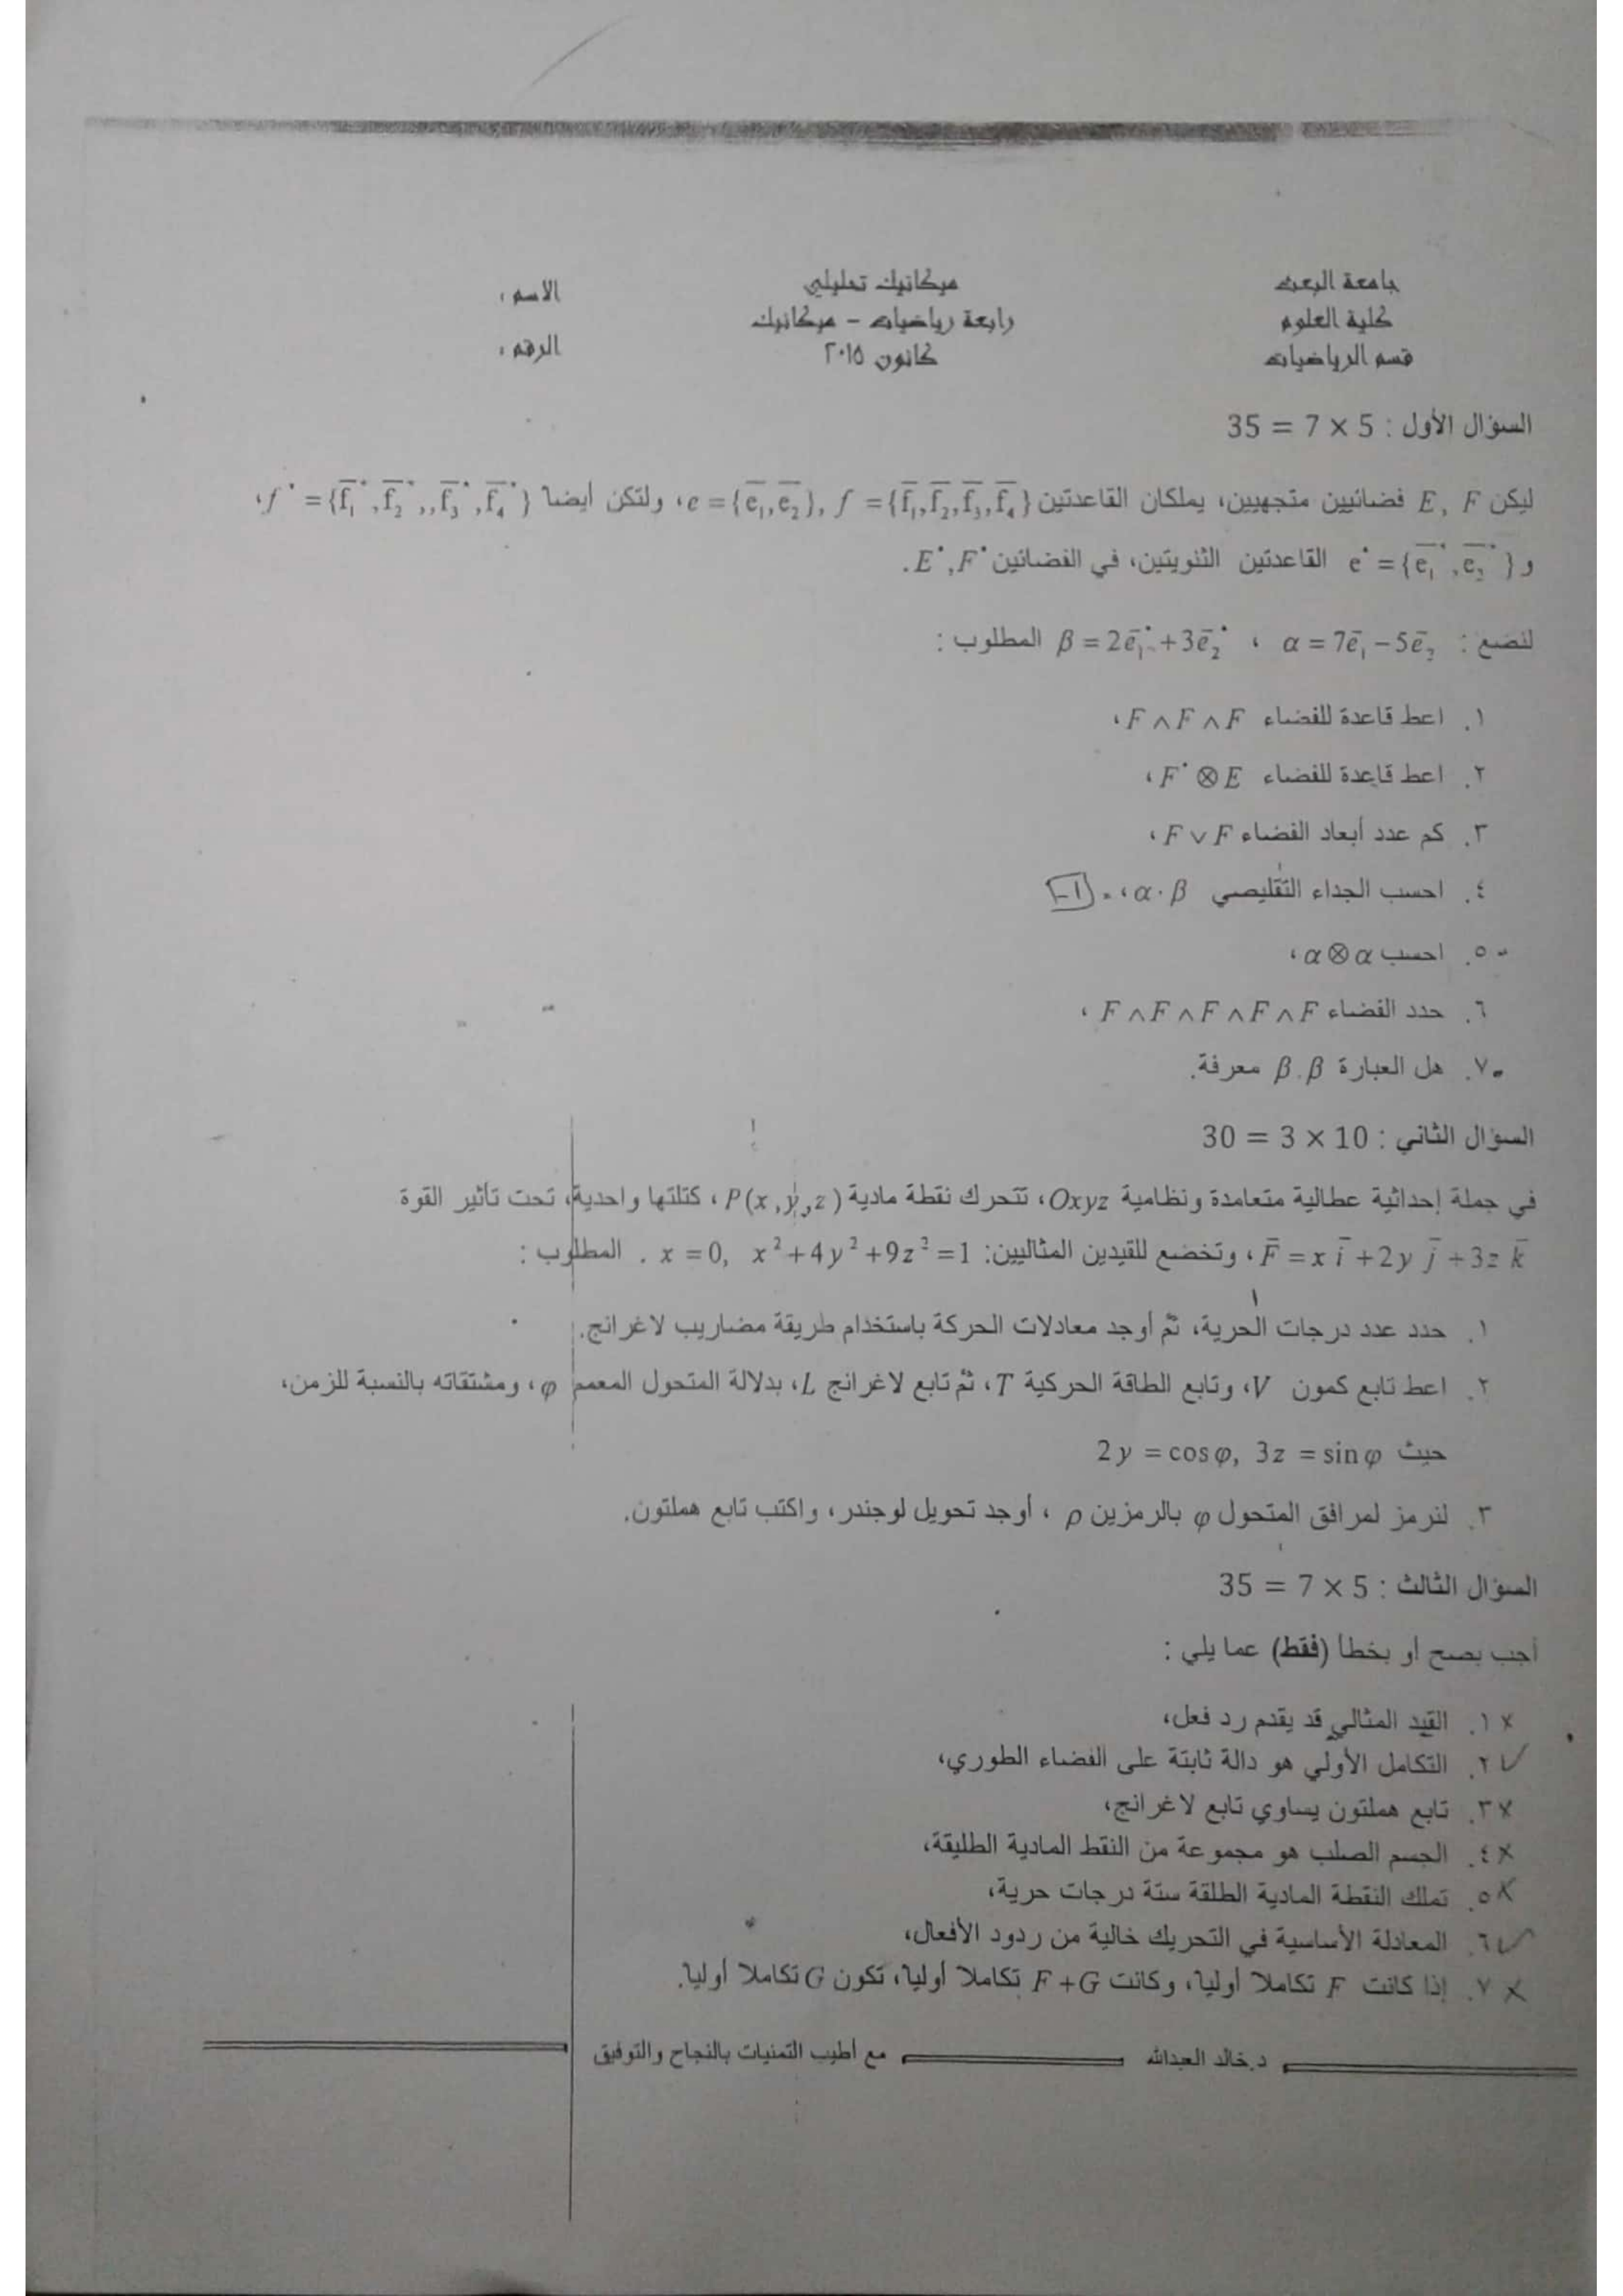 جامعة البعث
كلية العلوم
قسم الرياضيات
ميكانيك تحليلي
رابعة رياضيات - ميكانيك
كانون ٢٠١٥
الاسم :
الرقم :
السؤال الأول : 5 × 7 = 35
ليكن E, F فضائيين متجهيين، يملكان القاعدتين e = {e̅₁, e̅₂}, f = {f̅₁, f̅₂, f̅₃, f̅₄}، ولتكن أيضا f* = {f̅₁*, f̅₂*,, f̅₃*, f̅₄*}،
و e* = {e̅₁*, e̅₂*} القاعدتين الثنويتين، في الفضائين E*, F*.
لنضع : α = 7e̅₁ − 5e̅₂ ، β = 2e̅₁* + 3e̅₂* المطلوب :
١. اعط قاعدة للفضاء F ∧ F ∧ F ،
٢. اعط قاعدة للفضاء F* ⊗ E ،
٣. كم عدد أبعاد الفضاء F ∨ F ،
٤. احسب الجداء التقليصي α · β ، = -1
٥. احسب α ⊗ α ،
٦. حدد الفضاء F ∧ F ∧ F ∧ F ∧ F ،
٧. هل العبارة β . β معرفة.
السؤال الثاني : 10 × 3 = 30
في جملة إحداثية عطالية متعامدة ونظامية Oxyz، تتحرك نقطة مادية P(x, y, z)، كتلتها واحدية، تحت تأثير القوة
F̅ = x i̅ + 2y j̅ + 3z k̅ ، وتخضع للقيدين المثاليين: x = 0, x² + 4y² + 9z² = 1 . المطلوب :
١. حدد عدد درجات الحرية، ثم أوجد معادلات الحركة باستخدام طريقة مضاريب لاغرانج.
٢. اعط تابع كمون V، وتابع الطاقة الحركية T، ثم تابع لاغرانج L، بدلالة المتحول المعمم φ، ومشتقاته بالنسبة للزمن،
حيث 2y = cos φ, 3z = sin φ
٣. لنرمز لمرافق المتحول φ بالرمزين ρ ، أوجد تحويل لوجندر، واكتب تابع هملتون.
السؤال الثالث : 5 × 7 = 35
أجب بصح أو بخطأ (فقط) عما يلي :
× ١. القيد المثالي قد يقدم رد فعل،
✓ ٢. التكامل الأولي هو دالة ثابتة على الفضاء الطوري،
× ٣. تابع هملتون يساوي تابع لاغرانج،
× ٤. الجسم الصلب هو مجموعة من النقط المادية الطليقة،
× ٥. تملك النقطة المادية الطلقة ستة درجات حرية،
✓ ٦. المعادلة الأساسية في التحريك خالية من ردود الأفعال،
× ٧. إذا كانت F تكاملا أوليا، وكانت F + G تكاملا أوليا، تكون G تكاملا أوليا.
د.خالد العبدالله مع أطيب التمنيات بالنجاح والتوفيق